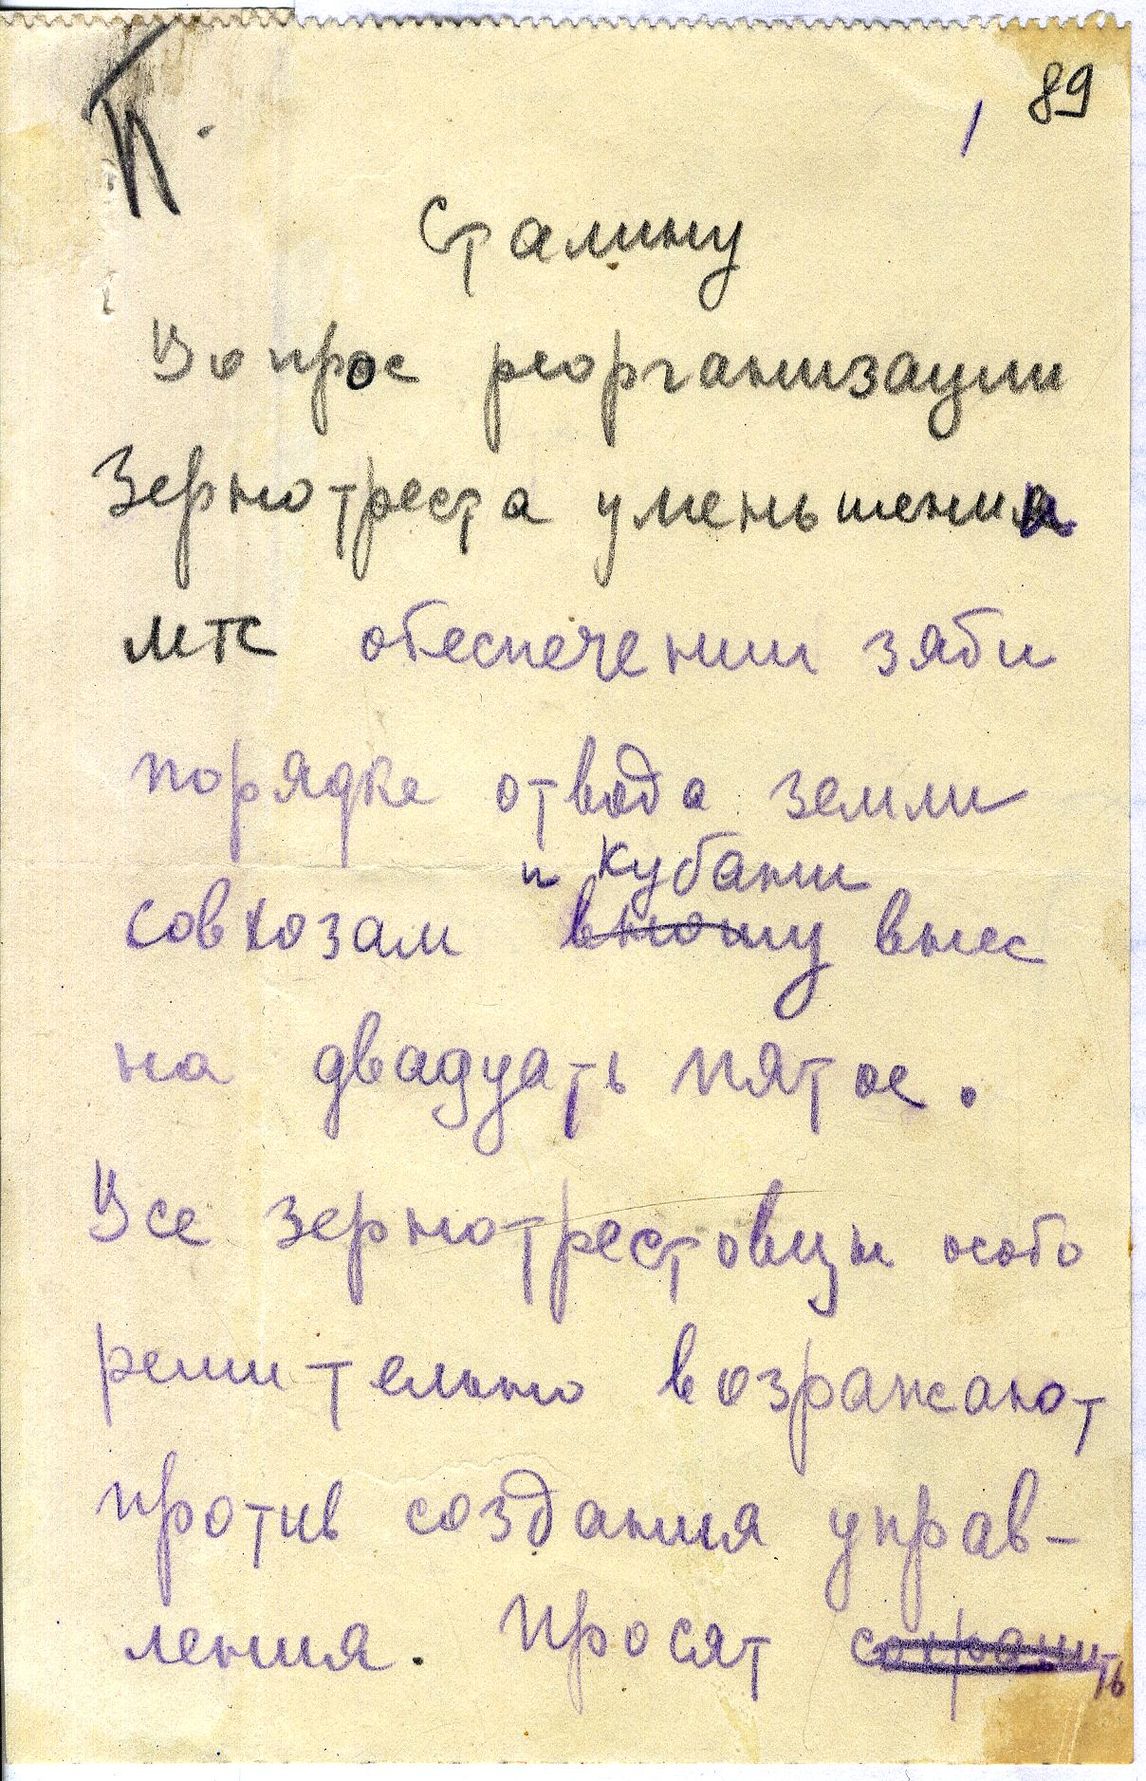 П.
89
Сталину
Вопрос реорганизации
Зернотреста уменьшения
мтс обеспечении зяби
порядке отвода земли
и Кубани
совхозам вношу внес
на двадцать пятое.
Все зернотрестовцы особо
решительно возражают
против создания управ-
ления. Просят сохранить